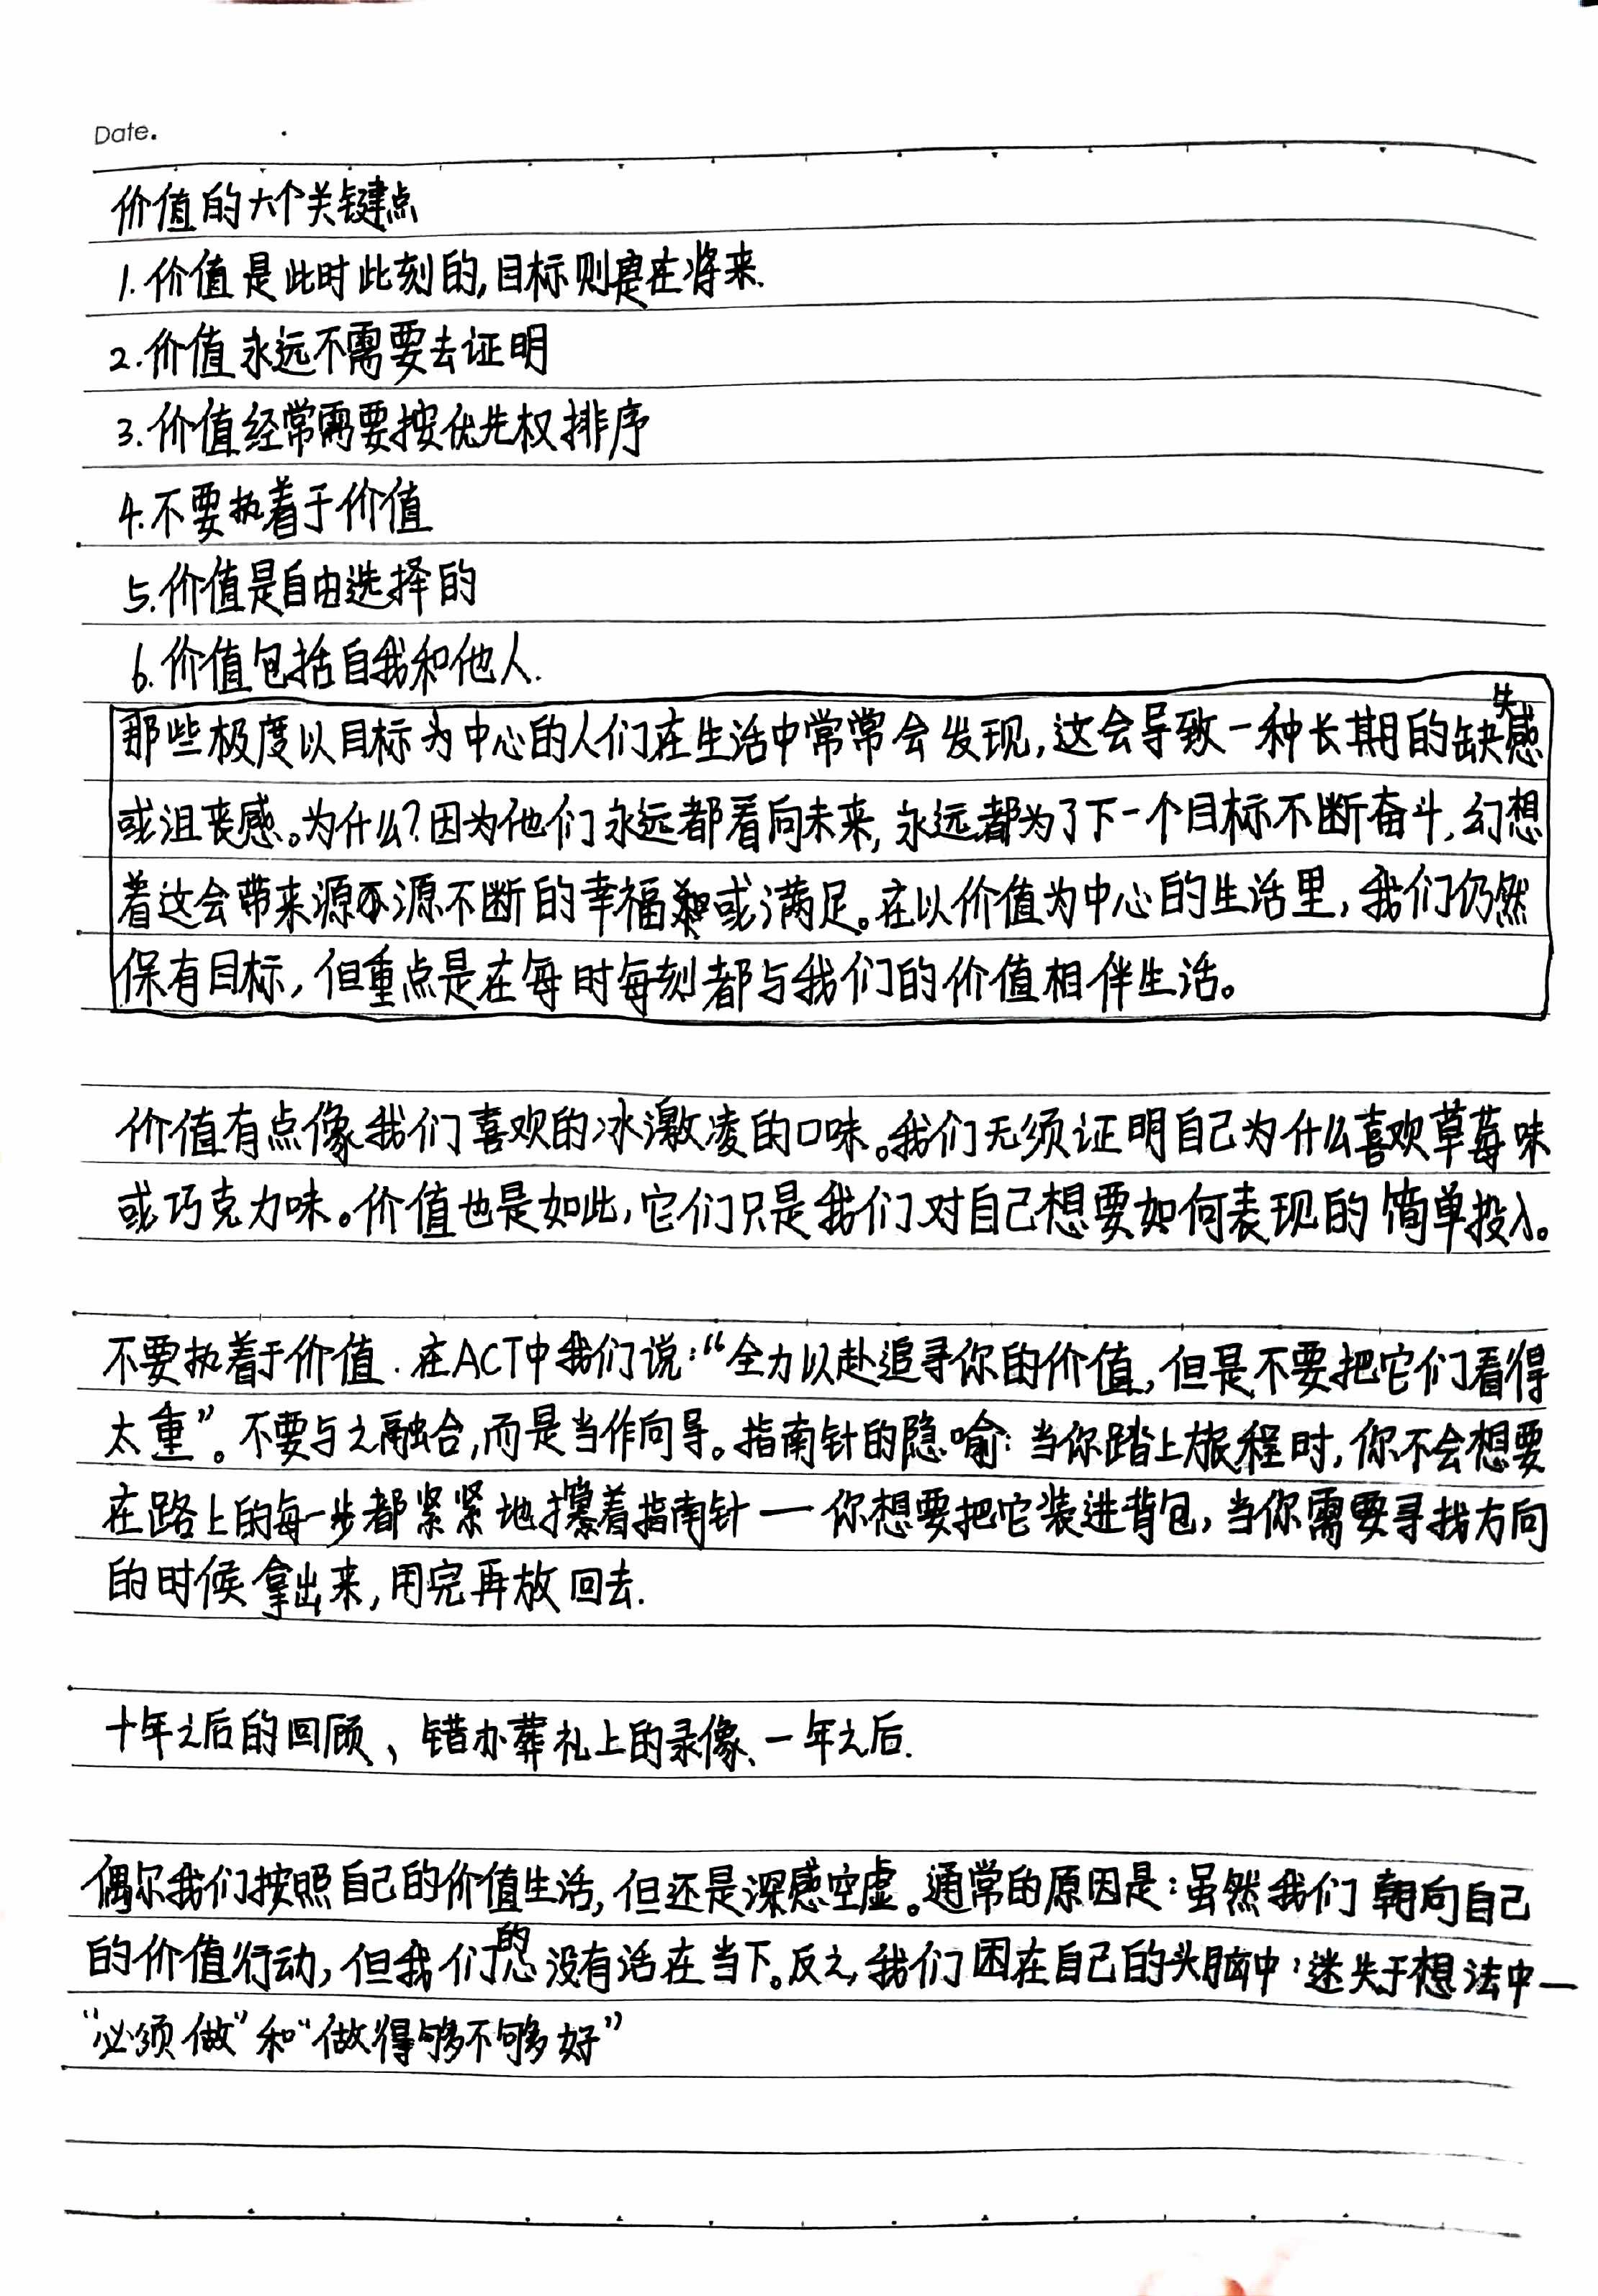 Date.
价值的六个关键点
1.价值是此时此刻的,目标则是在将来.
2.价值永远不需要去证明
3.价值经常需要按优先权排序
4.不要执着于价值
5.价值是自由选择的
6.价值包括自我和他人.
那些极度以目标为中心的人们在生活中常常会发现,这会导致一种长期的缺失感
或沮丧感。为什么?因为他们永远都看向未来,永远都为了下一个目标不断奋斗,幻想
着这会带来源源不断的幸福或满足。在以价值为中心的生活里,我们仍然
保有目标,但重点是在每时每刻都与我们的价值相伴生活。
价值有点像我们喜欢的冰激凌的口味。我们无须证明自己为什么喜欢草莓味
或巧克力味。价值也是如此,它们只是我们对自己想要如何表现的简单投入。
不要执着于价值.在ACT中我们说:“全力以赴追寻你的价值,但是不要把它们看得
太重”。不要与之融合,而是当作向导。指南针的隐喻:当你踏上旅程时,你不会想要
在路上的每一步都紧紧地攥着指南针一你想要把它装进背包,当你需要寻找方向
的时候拿出来,用完再放回去.
十年之后的回顾、错办葬礼上的录像、一年之后.
偶尔我们按照自己的价值生活,但还是深感空虚。通常的原因是:虽然我们朝向自己
的价值行动,但我们的心没有活在当下。反之,我们困在自己的头脑中,迷失于想法中一
“必须做”和“做得够不够好”